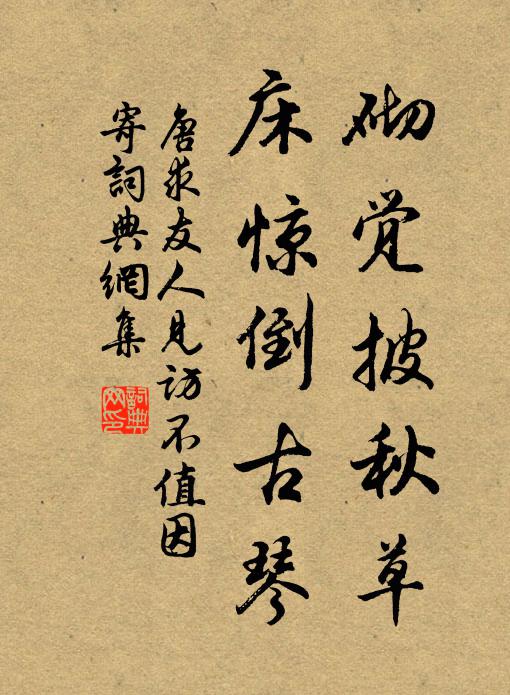 砌觉披秋草
床惊倒古琴
唐求友人见访不值因
寄詞典網集
詞典網印